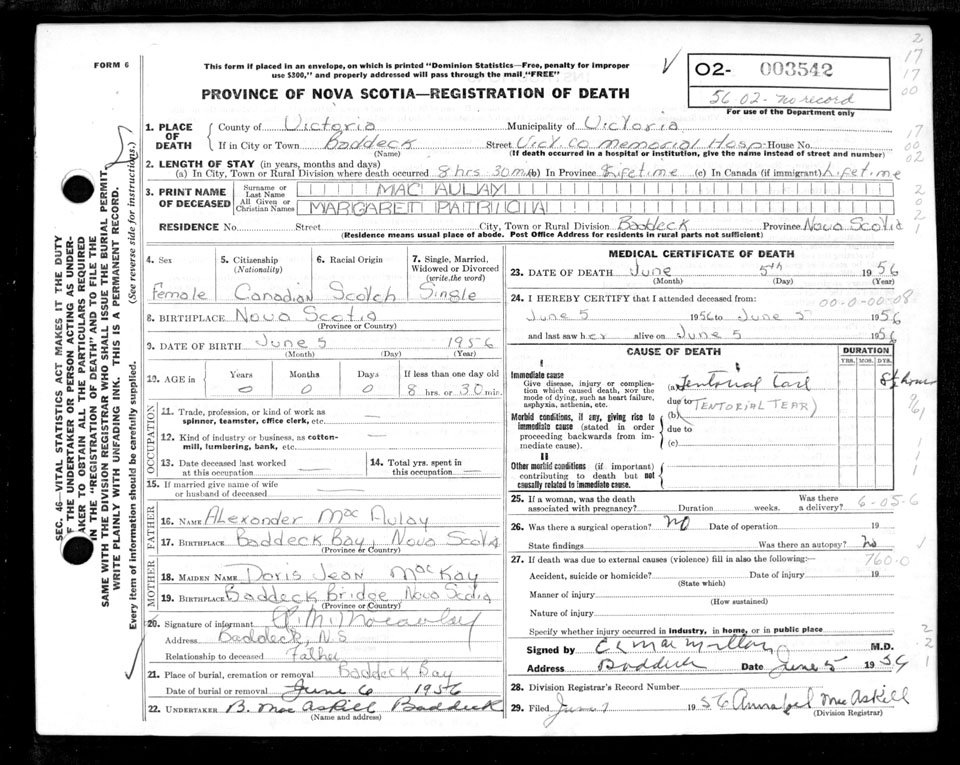 FORM 6
This form if placed in an envelope, on which is printed "Dominion Statistics—Free, penalty for improper
use $300," and properly addressed will pass through the mail "FREE"
O2- 003542
56 02- no record
For use of the Department only
PROVINCE OF NOVA SCOTIA—REGISTRATION OF DEATH
1. PLACE OF DEATH
County of Victoria Municipality of Victoria
If in City or Town Baddeck Street Vict. Co Memorial Hosp House No.
(Name) (If death occurred in a hospital or institution, give the name instead of street and number)
2. LENGTH OF STAY (in years, months and days)
(a) In City, Town or Rural Division where death occurred 8 hrs 30 m (b) In Province Lifetime (c) In Canada (if immigrant) Lifetime
3. PRINT NAME OF DECEASED
Surname or Last Name MAC AULAY
All Given or Christian Names MARGARET PATRICIA
RESIDENCE No. Street City, Town or Rural Division Baddeck Province Nova Scotia
(Residence means usual place of abode. Post Office Address for residents in rural parts not sufficient)
4. Sex
Female
5. Citizenship
(Nationality)
Canadian
6. Racial Origin
Scotch
7. Single, Married, Widowed or Divorced
(write the word)
Single
8. BIRTHPLACE Nova Scotia
(Province or Country)
9. DATE OF BIRTH June 5 1956
(Month) (Day) (Year)
10. AGE IN Years Months Days If less than one day old
0 0 0 8 hrs. or 30 min.
OCCUPATION
11. Trade, profession, or kind of work as
spinner, teamster, office clerk, etc. —
12. Kind of industry or business, as cotton-
mill, lumbering, bank, etc. —
13. Date deceased last worked
at this occupation —
14. Total yrs. spent in
this occupation —
15. If married give name of wife
or husband of deceased —
FATHER
16. Name Alexander Mac Aulay
17. Birthplace Baddeck Bay, Nova Scotia
(Province or Country)
MOTHER
18. Maiden Name Doris Jean MacKay
19. Birthplace Baddeck Bridge Nova Scotia
(Province or Country)
20. Signature of informant
Address Baddeck, N.S
Relationship to deceased Father
21. Place of burial, cremation or removal Baddeck Bay
Date of burial or removal June 6 1956
22. UNDERTAKER B. Mac Askill Baddeck
(Name and address)
MEDICAL CERTIFICATE OF DEATH
23. DATE OF DEATH June 5th 1956
(Month) (Day) (Year)
24. I HEREBY CERTIFY that I attended deceased from: 00-0-00-08
June 5 1956 to June 5 1956
and last saw her alive on June 5 1956
CAUSE OF DEATH
DURATION
YRS. MOS. DYS.
I
Immediate cause
Give disease, injury or complica-
tion which caused death, NOT the
mode of dying, such as heart failure,
asphyxia, asthenia, etc.
(a) Tentorial Tear 8½ hours
due to TENTORIAL TEAR)
Morbid conditions, if any, giving rise to
immediate cause (stated in order
proceeding backwards from im-
mediate cause).
(b)
due to
(c)
II
Other morbid conditions (if important)
contributing to death but not
causally related to immediate cause.
25. If a woman, was the death
associated with pregnancy? Duration weeks. Was there a delivery? 6-05-6
26. Was there a surgical operation? NO Date of operation 19
State findings Was there an autopsy? no
27. If death was due to external causes (violence) fill in also the following:— 760-0
Accident, suicide or homicide? Date of injury 19
(State which)
Manner of injury
(How sustained)
Nature of injury
Specify whether injury occurred in industry, in home, or in public place
Signed by C L MacMillan M.D.
Address Baddeck Date June 5 1956
28. Division Registrar's Record Number
29. Filed June 7 1956 Annabel MacAskill
(Division Registrar)
SEC. 46—VITAL STATISTICS ACT MAKES IT THE DUTY
OF THE UNDERTAKER OR PERSON ACTING AS UNDER-
TAKER TO OBTAIN ALL THE PARTICULARS REQUIRED
IN THE "REGISTRATION OF DEATH" AND TO FILE THE
SAME WITH THE DIVISION REGISTRAR WHO SHALL ISSUE THE BURIAL PERMIT.
WRITE PLAINLY WITH UNFADING INK. THIS IS A PERMANENT RECORD.
Every item of information should be carefully supplied. (See reverse side for instructions.)
2
17
17
00
17
00
02
2
0
2
1
9
61
1
1
1
2
2
1